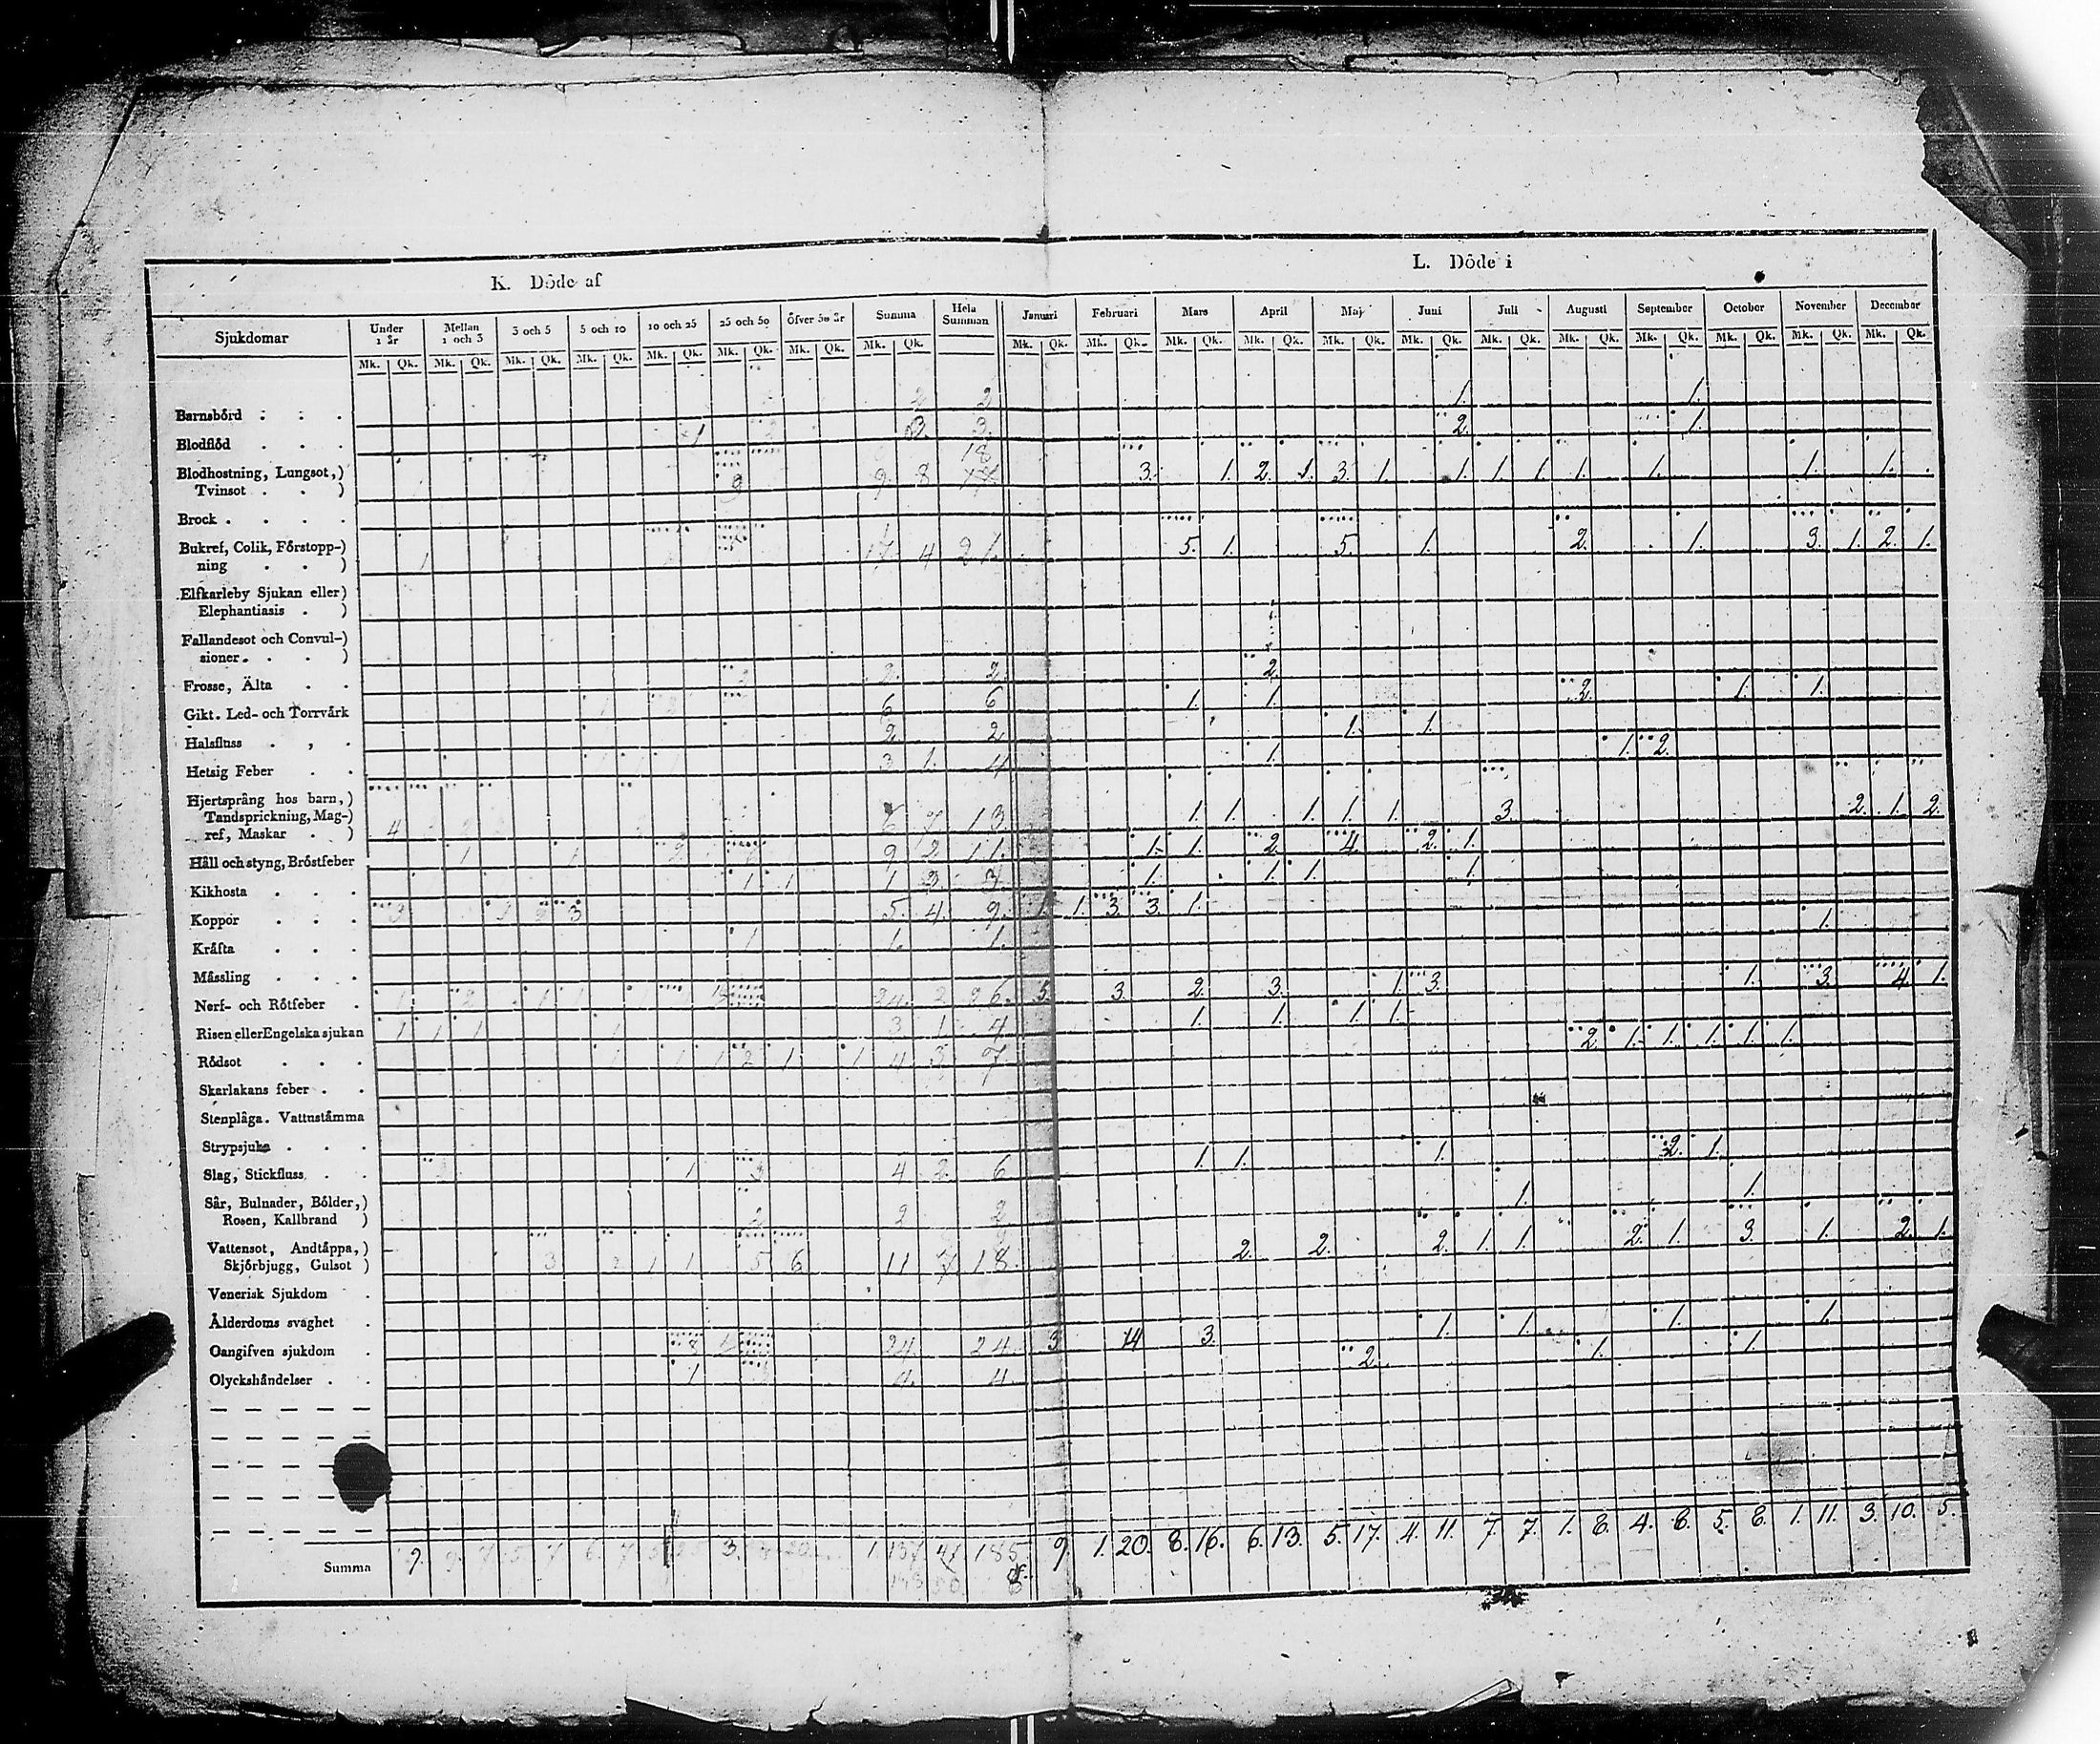 K. Döde af
L. Döde i
Sjukdomar
Under 1 år
Mellan 1 och 3
3 och 5
5 och 10
10 och 25
25 och 50
Öfver 50 år
Summa
Hela Summan
Januari
Februari
Mars
April
Maj
Juni
Juli
Augusti
September
October
November
December
Mk. Qk. Mk. Qk. Mk. Qk. Mk. Qk. Mk. Qk. Mk. Qk. Mk. Qk. Mk. Qk.
Mk. Qk. Mk. Qk. Mk. Qk. Mk. Qk. Mk. Qk. Mk. Qk. Mk. Qk. Mk. Qk. Mk. Qk. Mk. Qk. Mk. Qk. Mk. Qk.
Barnsbörd . . . 2 2 1. 1.
Blodflöd . . . 1 3. 3. 2. 1.
Blodhostning, Lungsot,)
Tvinsot . . ) 9 9. 8 18 3. 1. 2. 1. 3. 1. 1. 1. 1. 1. 1. 1. 1.
Brock . . . .
Bukref, Colik, Förstopp-)
ning . . ) 1 17 4 21. 5. 1. 5. 1. 2. 1. 3. 1. 2. 1.
Elfkarleby Sjukan eller)
Elephantiasis . )
Fallandesot och Convul-)
sioner . . . )
Frosse, Älta . . 2 2. 2. 2.
Gikt. Led- och Torrvärk 6 6 1. 1. 2. 1. 1.
Halsfluss . , . 2. 2. 1. 1.
Hetsig Feber . . 3 1. 4 1. 1. 2.
Hjertsprång hos barn,)
Tandsprickning, Mag-)
ref, Maskar . ) 4 6 7 13. 1. 1. 1. 1. 1. 3. 2. 1. 2.
Håll och styng, Bröstfeber 1 1 2 9 2 11. 1. 1. 2. 4. 2. 1.
Kikhosta . . . 1 1 1 3. 3. 1. 1. 1. 1.
Koppor . . . 3 3 5. 4. 9. 1. 1. 3. 3. 1.
Kräfta . . . 1 1. 1. 1.
Mässling . . .
Nerf- och Rötfeber . 1 2 1 1 24. 2 26. 5. 3. 2. 3. 1. 3. 1. 3. 4. 1.
Risen eller Engelska sjukan 1 1 1 1 3 1 4 1. 1. 1. 1.
Rödsot . . . 1 1 1 2 1 1 4 3. 7 2. 1. 1. 1. 1. 1.
Skarlakans feber . .
Stenplåga. Vattustämma
Strypsjuka . . .
Slag, Stickfluss . . 1 3 4 2 6 1. 1. 1. 2. 1.
Sår, Bulnader, Bölder,)
Rosen, Kallbrand ) 2 2 2 1. 1.
Vattensot, Andtäppa,)
Skjörbjugg, Gulsot ) 3 1 1 5 6 11 7 18. 2. 2. 2. 1. 1. 2. 1. 3. 1. 2. 1.
Venerisk Sjukdom .
Ålderdoms svaghet .
Oangifven sjukdom . 8 24. 24. 3. 14 3. 1. 1. 1. 1.
Olyckshändelser . . 1 4. 4. 2. 1. 1.
Summa 9. 7 3. 1. 137 47 185 9. 1. 20. 8. 16. 6. 13. 5. 17. 4. 11. 7. 7. 1. 8. 4. 8. 5. 8. 1. 11. 3. 10. 5.